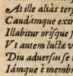 At ille alias ter
Caudámque exc
Illabitur orisque
Vt autem lucta
Diu aduersus se
Iamque è membi